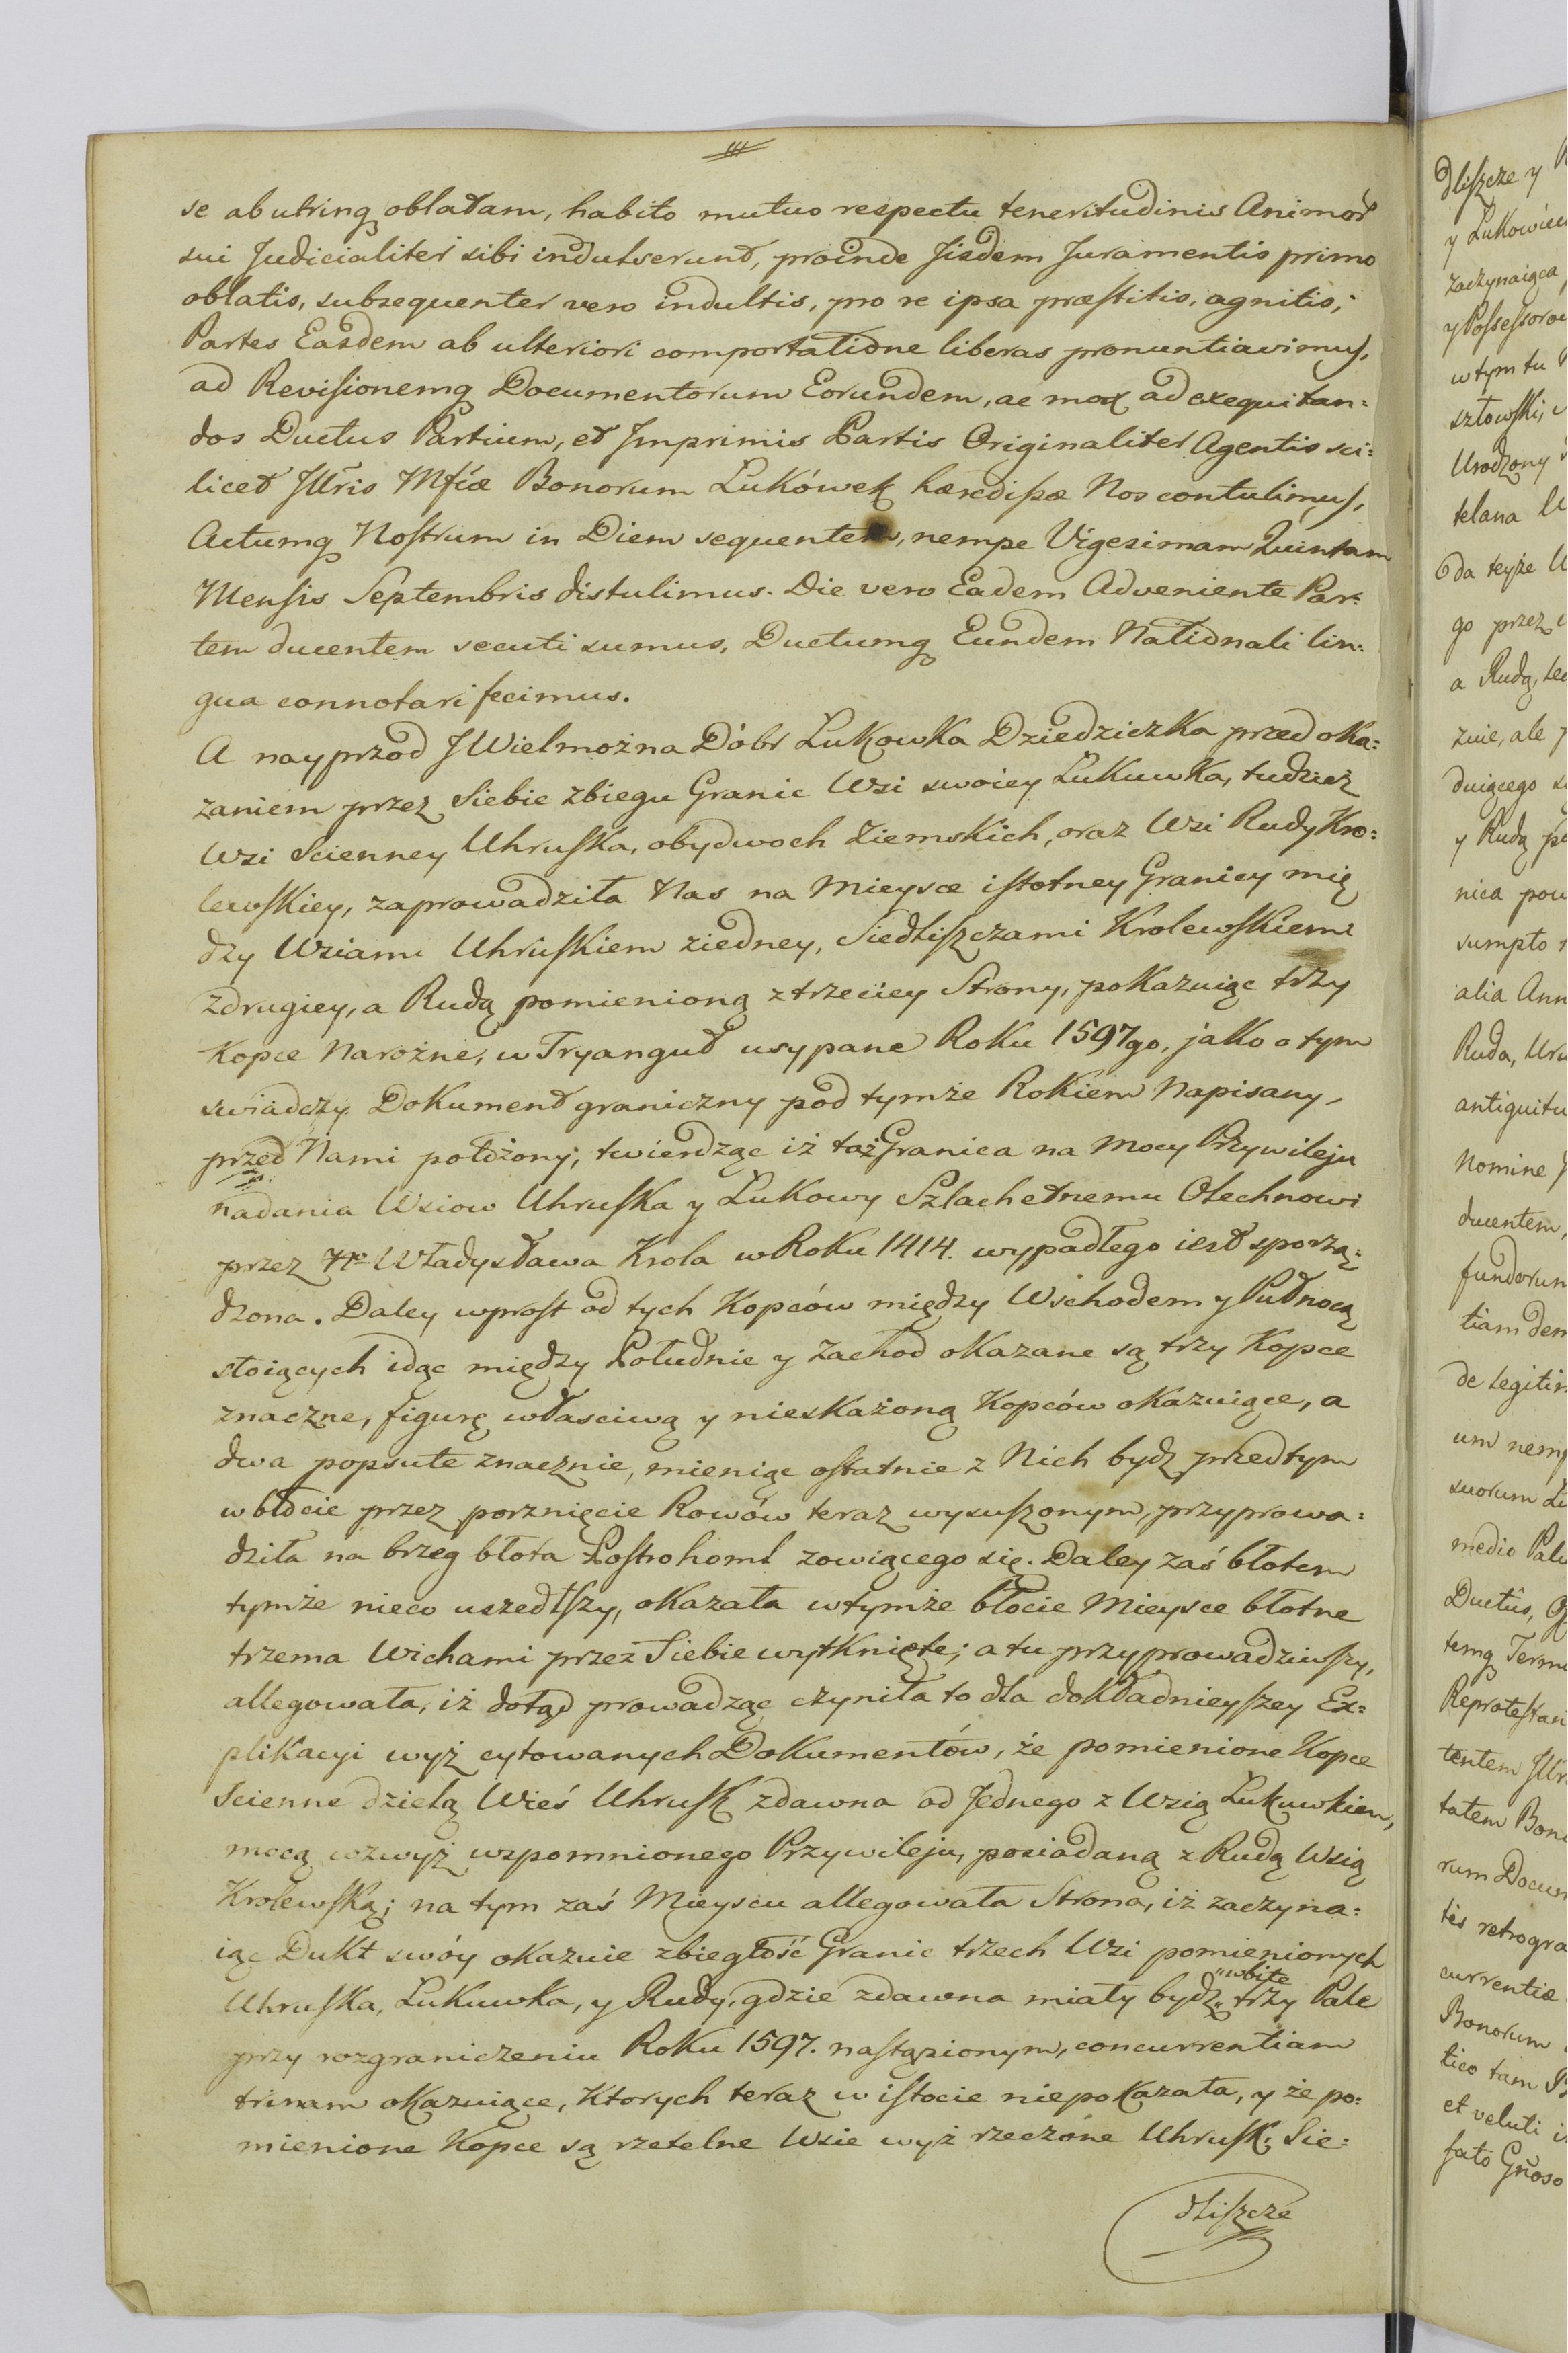 se ab utrinq oblatam, habito mutuo respectu teneritudinis Animor
sui Judicialiter sibi indulserunt, proinde Jisdem Juramentis primo
oblatis, subsequenter vero indultis, pro re ipsa præstitis, agnitis,
Partes Easdem ab ulteriori comportatione liberas pronuntiavimus,
ad Revisionemq Documentorum Eorundem, ac mox ad exequitan=
dos Ductus Partium, et Imprimis Partis Originaliter Agentis sci=
licet Jllris Mfcæ Bonorum Łukówek hæredissæ Nos contulimus,
Actumq Nostrum in Diem sequentem, nempe Vigesimam Quintam
Mensis Septembris distulimus. Die vero Eadem Adveniente Par=
tem ducentem secuti sumus, Ductumq Eundem Nationali lin=
gua connotari fecimus.
A nayprzod JWielmożna Dóbr Łukowka Dziedziczka przed oka=
zaniem przez Siebie zbiegu Granic Wsi swoiey Łukuwka, tudzież
Wsi Scienney Uhruska, obydwoch Ziemskich, oraz Wsi Rudy Kro=
lewskiey, zaprowadziła Nas na Mieysce istotney Granicy mię
dzy Wsiami Uhruskiem ziedney, Siedliszczami Krolewskiemi
zdrugiey, a Rudą pomienioną z trzeciey Strony, pokazuiąc trzy
Kopce Narożne, w Tryanguł usypane Roku 1597go, jako o tym
swiadczy Dokument graniczny pod tymże Rokiem Napisany,
przed Nami położony; twierdząc iż taż Granica na mocy Przywileju
nadania Wsiow Uhruska y Łukowy Szlachetnemu Olechnowi
przez Władysława Krola w Roku 1414. wypadłego iest sporzą=
dzona. Daley wprost od tych Kopców między Wschodem y Pułnocą
stoiących idąc między Południe y Zachod okazane są trzy Kopce
znaczne, figurę własciwą y nieskażoną Kopców okazuiące, a
dwa popsute znacznie, mieniąc ostatnie z Nich bydz przedtym
w błocie przez porznięcie Rowów teraz wysuszonym, przyprowa=
dziła na brzeg błota Postrohoml zowiącego się. Daley zaś błotem
tymże nieco uszedłszy, okazała w tymże błocie Mieysce błotne
trzema Wichami przez Siebie wytknięte; a tu przyprowadziwszy,
allegowała, iż dotąd prowadząc czyniła to dla dokładnieyszey Ex=
plikacyi wyż cytowanych Dokumentów, że pomienione Kopce
Scienne dzielą Wieś Uhrusk zdawna od Jednego z Wsią Łukuwkiem,
mocą wzwyż wspomnionego Przywileju, posiadaną z Rudą Wsią
Krolewską; na tym zaś Mieyscu allegowała Strona, iż zaczyna=
iąc Dukt swóy okazuie zbiegłość Granic trzech Wsi pomienionych
Uhruska, Łukuwka, y Rudy, gdzie zdawna miały bydz "wbite trzy Pale
przy rozgraniczeniu Roku 1597. nastąpionym, concurrentiam
trinam okazuiące, Ktorych teraz w istocie niepokazała, y że po=
mienione Kopce są rzetelne Wsie wyż rzeczone Uhrusk, Sie=
dliszcze
dliszcze y
y Łukowiec
zaczynaiąca
y Possessorow
w tym tu
szłowski,
Urodzony
telana
da teyże
go przez
a Rudą,
znie, ale
duiącego
y Rudą
nica
sumpto
alia
Ruda,
antiquitu
Nomine
ducentem,
fundorum
tiam
de legitim
um nemp
suorum
medio
Ductus,
temq Term
Reprotestan
tentem
tatem Bon
rum Docum
tis retrogra
currentiæ
Bonorum
tico tam
et veluti
fato Gnoso